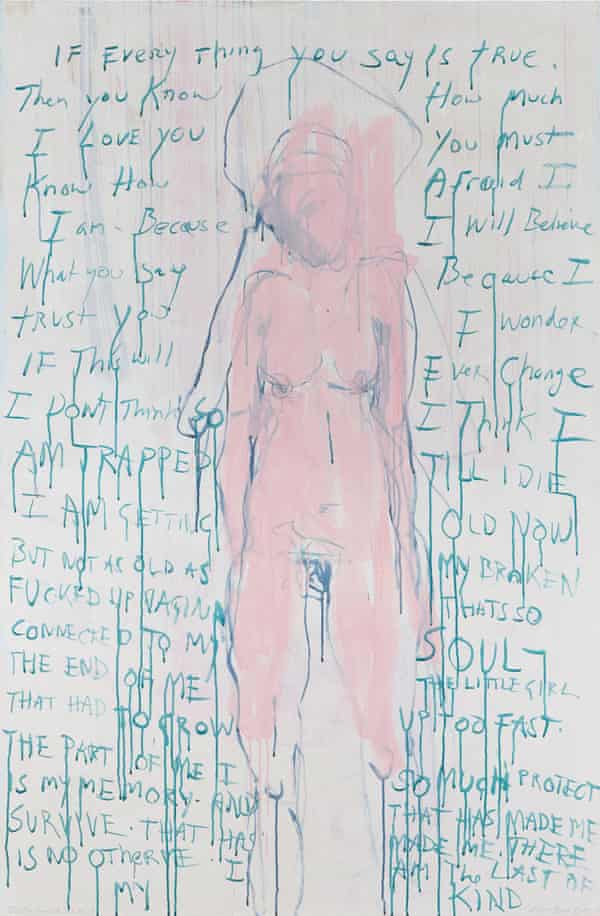 IF EVERY THING YOU SAY IS TRUE.
Then you Know How Much
I LOVE YOU You must
Know How Afraid I
I am - Because I Will Believe
What you say Because I
trust you I wonder.
IF This will Ever Change
I DONT Think SO I Think I
AM TRAPPED TILL I DIE
I AM GETTING OLD NOW
BUT NOT AS OLD AS MY BROKEN
FUCKED UP VAGINA THATS SO
CONNECTED TO MY SOUL
THE END OF ME THE LITTLE GIRL
THAT HAD TO GROW UP TOO FAST.
THE PART OF ME I SO MUCH PROTECT
IS MY MEMORY. AND THAT HAS MADE ME
SURVIVE. THAT HAS MADE ME. THERE
IS NO I AM The LAST OF
MY KIND